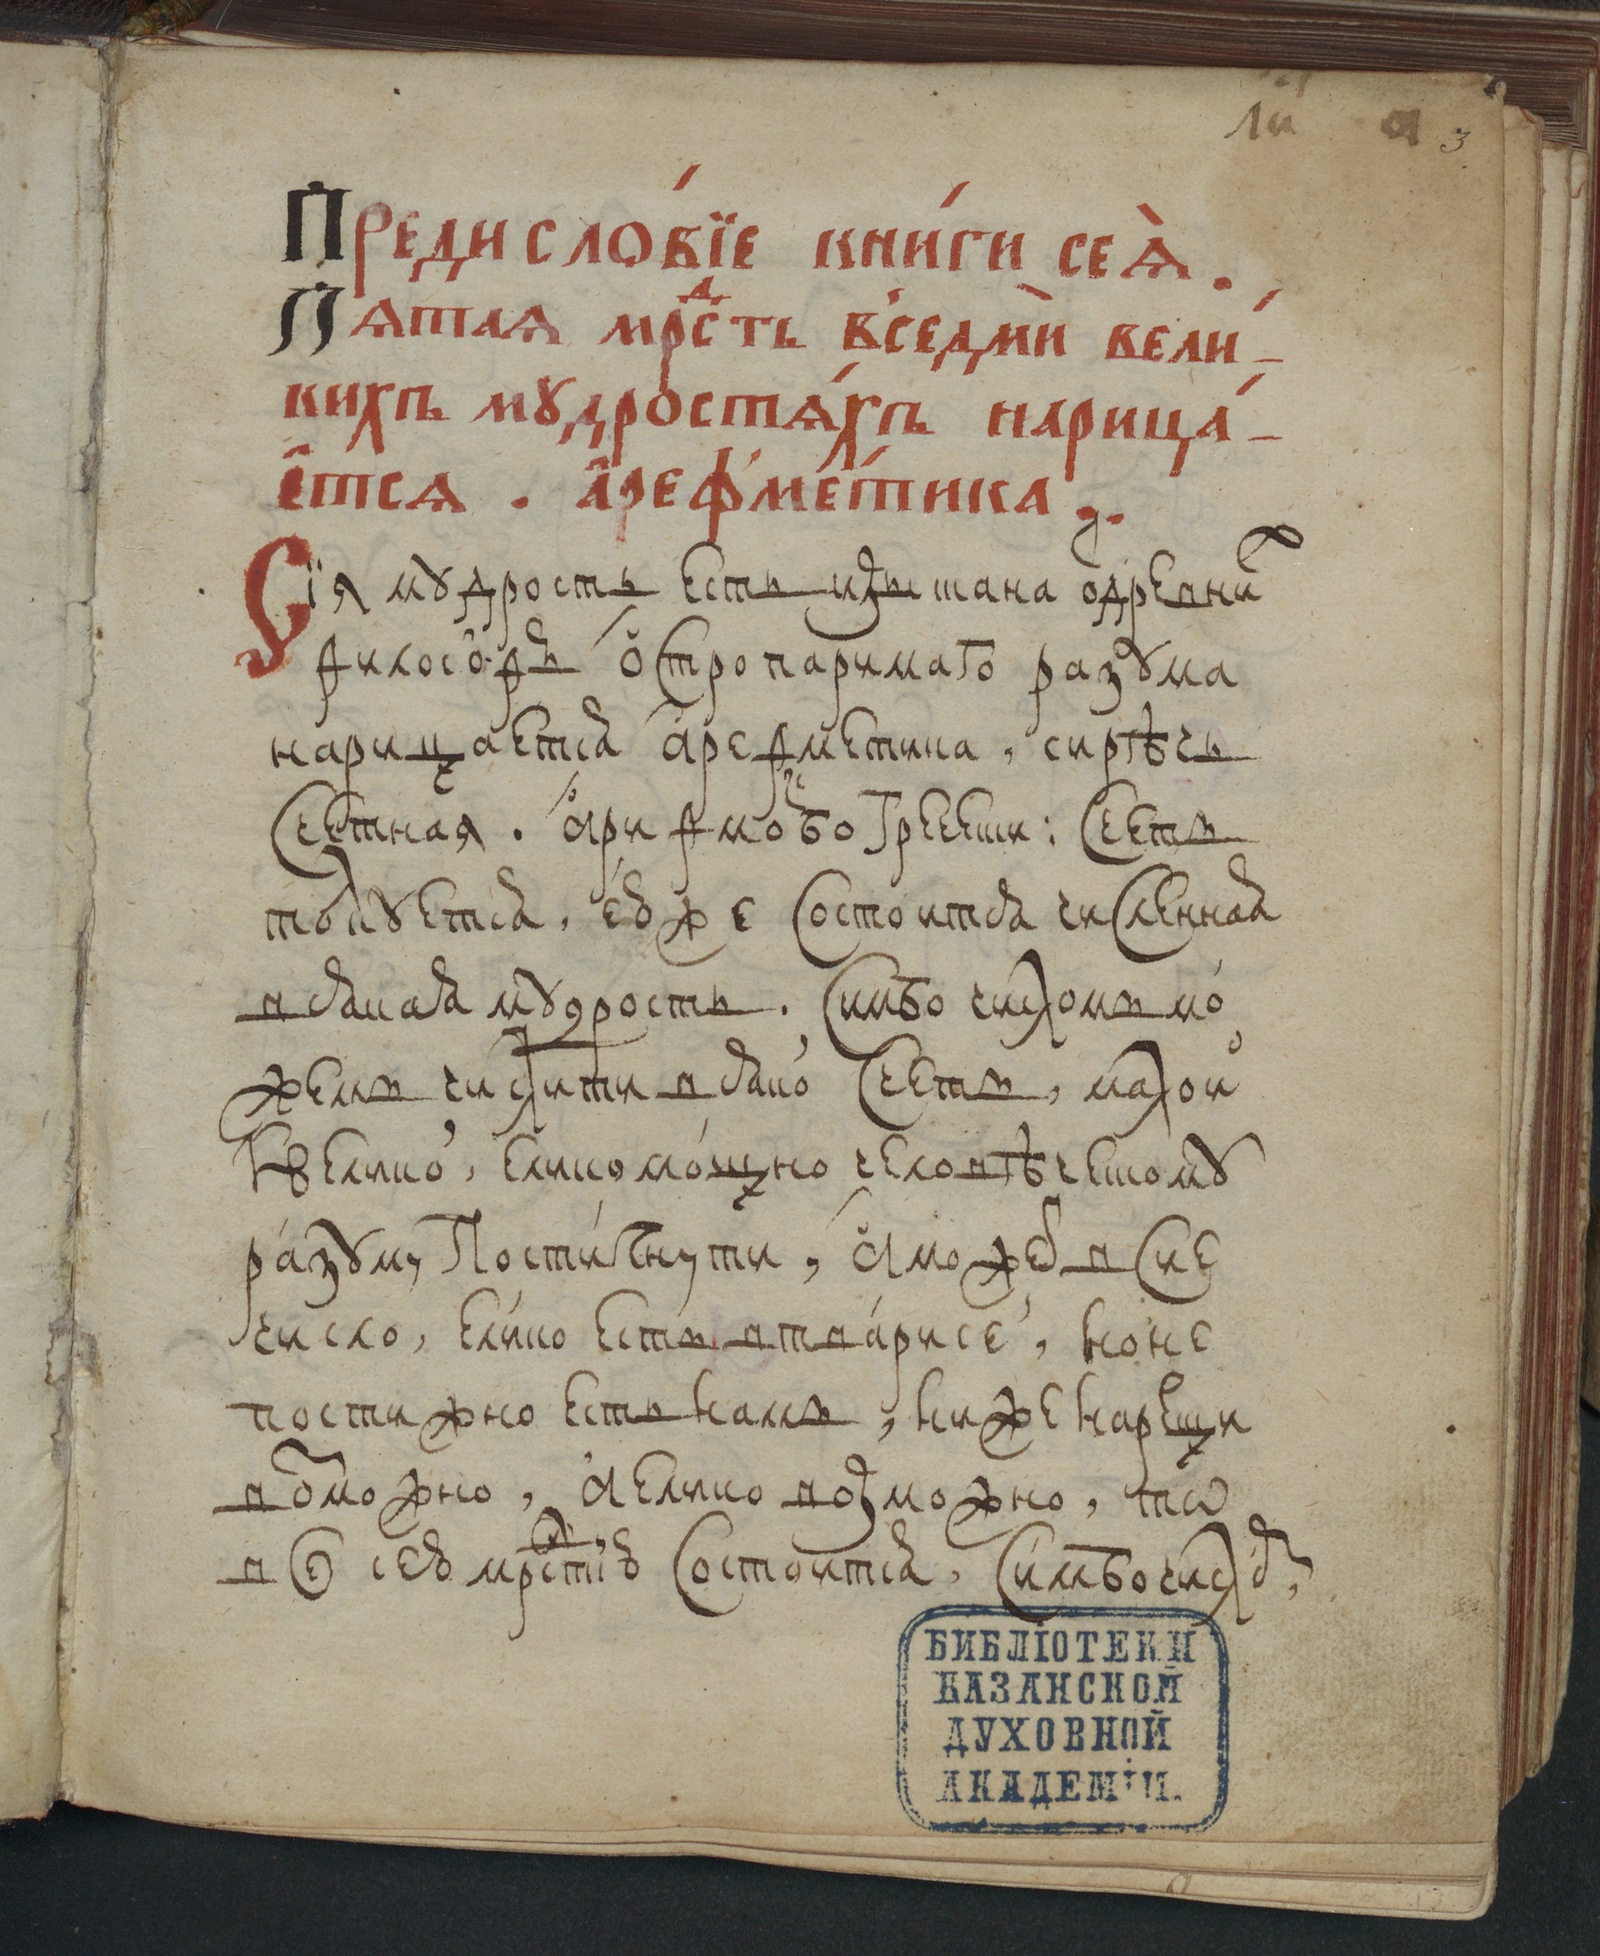 Ли а 3
Предислóвїе кни́ги сеѧ̀.
Пѧтаѧ мрⷣсть в̾седми̾ вели́-
кихъ мꙋдростѧ́хъ нарица́-
етсѧ. Арефме́тика.
Сїя мꙋдрость есть изыскана древни
философъ остропаримаго разꙋма
нарицается арефметика, сирѣчь
счетная. арифмосбо гречески: счетъ
толкꙋется, еюже состоится численная
всякая мꙋдрость. симбо числомъ мо
жемъ числити всяко счетъ, малои
великои, елико мощно человѣческомꙋ
разꙋмꙋ постигнꙋти, аможеб и сие
число, елико есть втварисе,ноне
постижно есть намъ, ниже нарещи
возможно, аелико возможно, тѡ
в сеи мрⷣстїи состоится. симбо числѡ,
БИБЛІОТЕКИ
КАЗАНСКОЙ
ДУХОВНОЙ
АКАДЕМІИ.